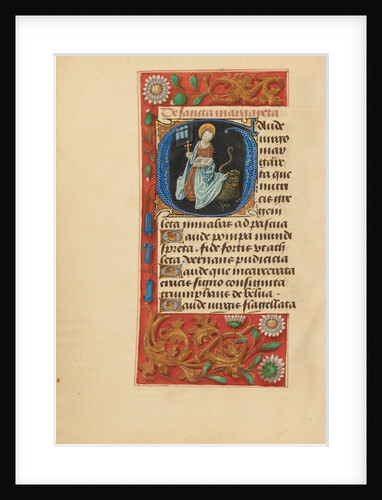 De sancta margareta
Gaude
virgo
mar
gare
ta que
mitei
cis gre
gem
leta mmabas ad pascua
Gaude pompa mundi
spreta. fide fortis
leta pudicicia
Gaude que incarcerata
crucis signo consignata
triumphans de belua.
Gaude virgis flagellata